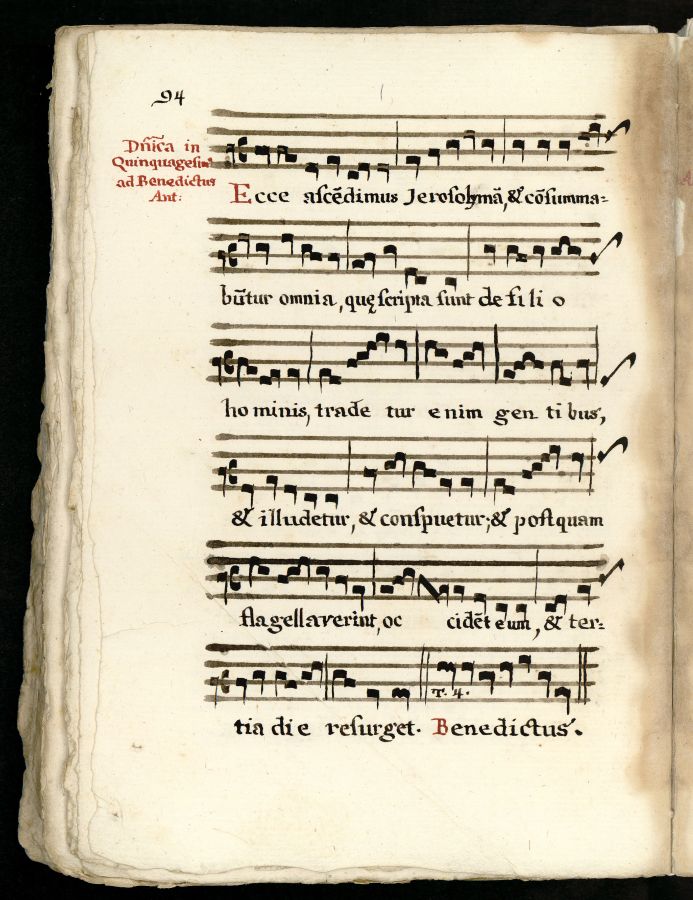 94
Dñica in
Quinquagesima
ad Benedictus
Ant:
Ecce ascẽdimus Jerosolymã, & cõsumma-
bũtur omnia, quę scripta sunt de fili o
ho minis, trade tur enim gen ti bus,
& illudetur, & conspuetur; & postquam
flagellaverint, oc cidẽt eum, & ter-
T. 4.
tia di e resurget. Benedictus.